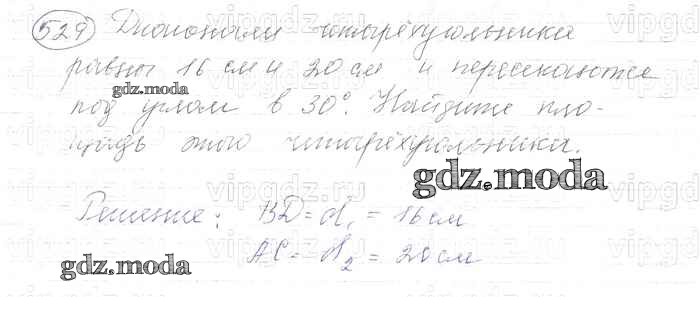 529 Диагонали четырёхугольника
равны 16 см и 20 см и пересекаются
gdz.moda
под углом в 30°. Найдите пло-
щадь этого четырёхугольника.
gdz.moda
Решение: BD = d₁ = 16 см
AC = d₂ = 20 см
gdz.moda